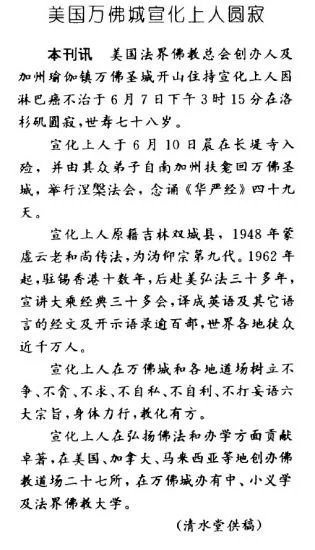 美国万佛城宣化上人圆寂
本刊讯 美国法界佛教总会创办人及
加州瑜伽镇万佛圣城开山住持宣化上人因
淋巴癌不治于6月7日下午3时15分在洛
杉矶圆寂,世寿七十八岁。
宣化上人于6月10日晨在长堤寺入
殓,并由其众弟子自南加州扶龛回万佛圣
城,举行涅槃法会,念诵《华严经》四十九
天。
宣化上人原籍吉林双城县,1948年蒙
虚云老和尚传法,为沩仰宗第九代。1962年
起,驻锡香港十数年,后赴美弘法三十多年,
宣讲大乘经典三十多会,译成英语及其它语
言的经文及开示语录逾百部,世界各地徒众
近千万人。
宣化上人在万佛城和各地道场树立不
争、不贪、不求、不自私、不自利、不打妄语六
大宗旨,身体力行,教化有方。
宣化上人在弘扬佛法和办学方面贡献
卓著,在美国、加拿大、马来西亚等地创办佛
教道场二十七所,在万佛城办有中、小义学
及法界佛教大学。
(清水堂供稿)